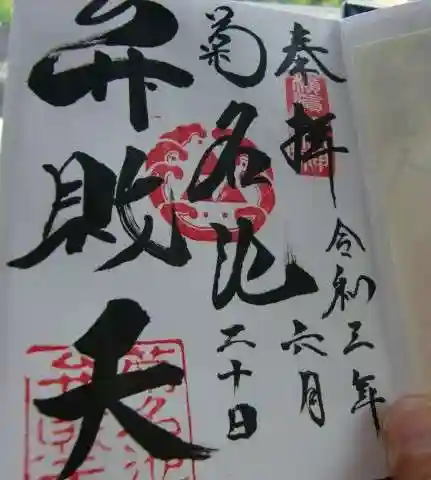 奉拝
令和三年
六月
二十日
菊名池
弁財天